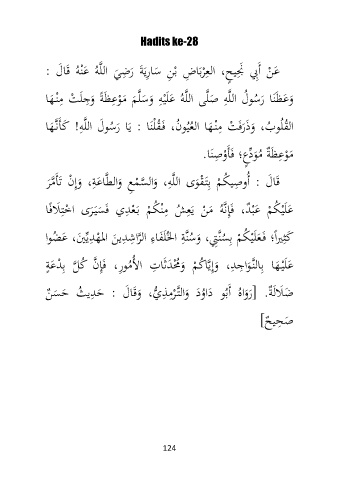 Hadits ke-28
عَنْ أَبِي نَجِيحٍ، العِرْبَاضِ بْنِ سَارِيَةَ رَضِيَ اللَّهُ عَنْهُ قَالَ :
وَعَظَنَا رَسُولُ اللَّهِ صَلَّى اللَّهُ عَلَيْهِ وَسَلَّمَ مَوْعِظَةً وَجِلَتْ مِنْهَا
القُلُوبُ، وَذَرَفَتْ مِنْهَا العُيُونُ، فَقُلْنَا : يَا رَسُولَ اللَّهِ! كَأَنَّهَا
مَوْعِظَةُ مُوَدِّعٍ؛ فَأَوْصِنَا.
قَالَ : أُوصِيكُمْ بِتَقْوَى اللَّهِ، وَالسَّمْعِ وَالطَّاعَةِ، وَإِنْ تَأَمَّرَ
عَلَيْكُمْ عَبْدٌ، فَإِنَّهُ مَنْ يَعِشْ مِنْكُمْ بَعْدِي فَسَيَرَى اخْتِلَافًا
كَثِيراً؛ فَعَلَيْكُمْ بِسُنَّتِي، وَسُنَّةِ الخُلَفَاءِ الرَّاشِدِينَ المَهْدِيِّينَ، عَضُّوا
عَلَيْهَا بِالنَّوَاجِدِ، وَإِيَّاكُمْ وَمُحْدَثَاتِ الأُمُورِ، فَإِنَّ كُلَّ بِدْعَةٍ
ضَلَالَةٌ. [رَوَاهُ أَبُو دَاوُدَ وَالتِّرْمِذِيُّ، وَقَالَ : حَدِيثٌ حَسَنٌ
صَحِيحٌ]
124